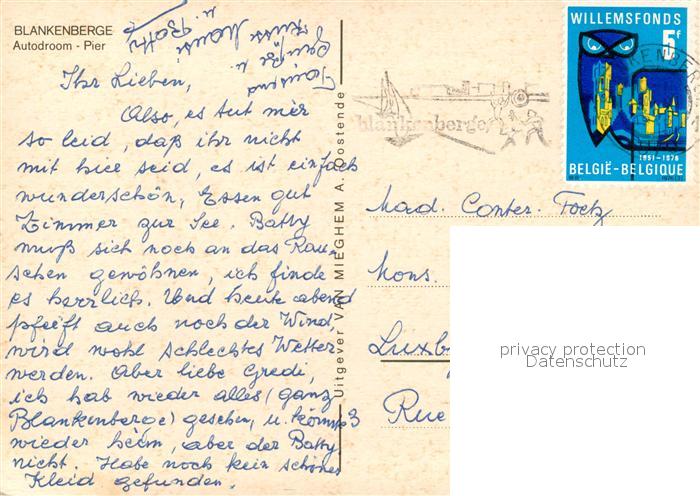 BLANKENBERGE
Autodroom - Pier
Ihr Lieben,
Also, es tut mir
so leid, daß ihr nicht
mit hier seid, es ist einfach
wunderschön, Essen gut
Zimmer zur See. Batty
muß sich noch an das Rau-
schen gewöhnen, ich finde
es herrlich. Und heute abend
pfeift auch noch der Wind,
wird wohl schlechtes Wetter
werden. Aber liebe Gredi,
ich hab wieder alles (ganz
Blankenberge) gesehen, u. könnte
wieder heim, aber der Batty
nicht. Habe noch kein schönes
Kleid gefunden.
Tausend
Grüße u.
Küsse
u. Batty
Uitgever VAN MIEGHEM A. Oostende
blankenberge
WILLEMSFONDS
5F
1851-1976
BELGIË-BELGIQUE
Mad. Conter. Foetz
Mons.
Luxb
Rue
3
privacy protection
Datenschutz